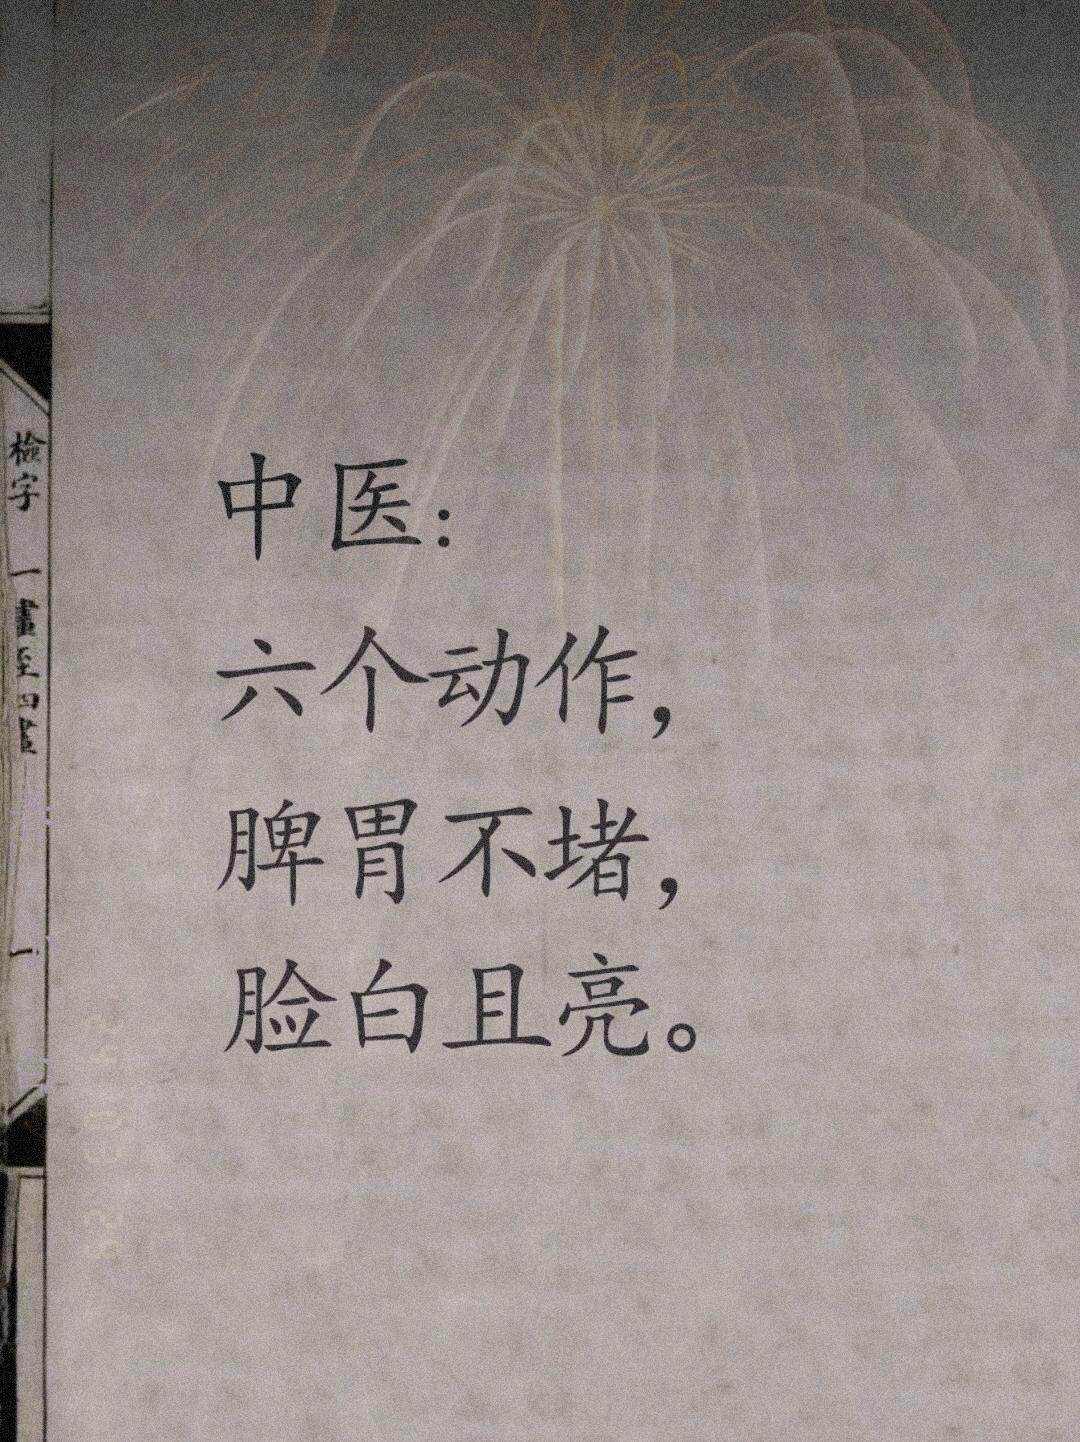 中医：
六个动作，
脾胃不堵，
脸白且亮。
檢字
一畫至四畫
一